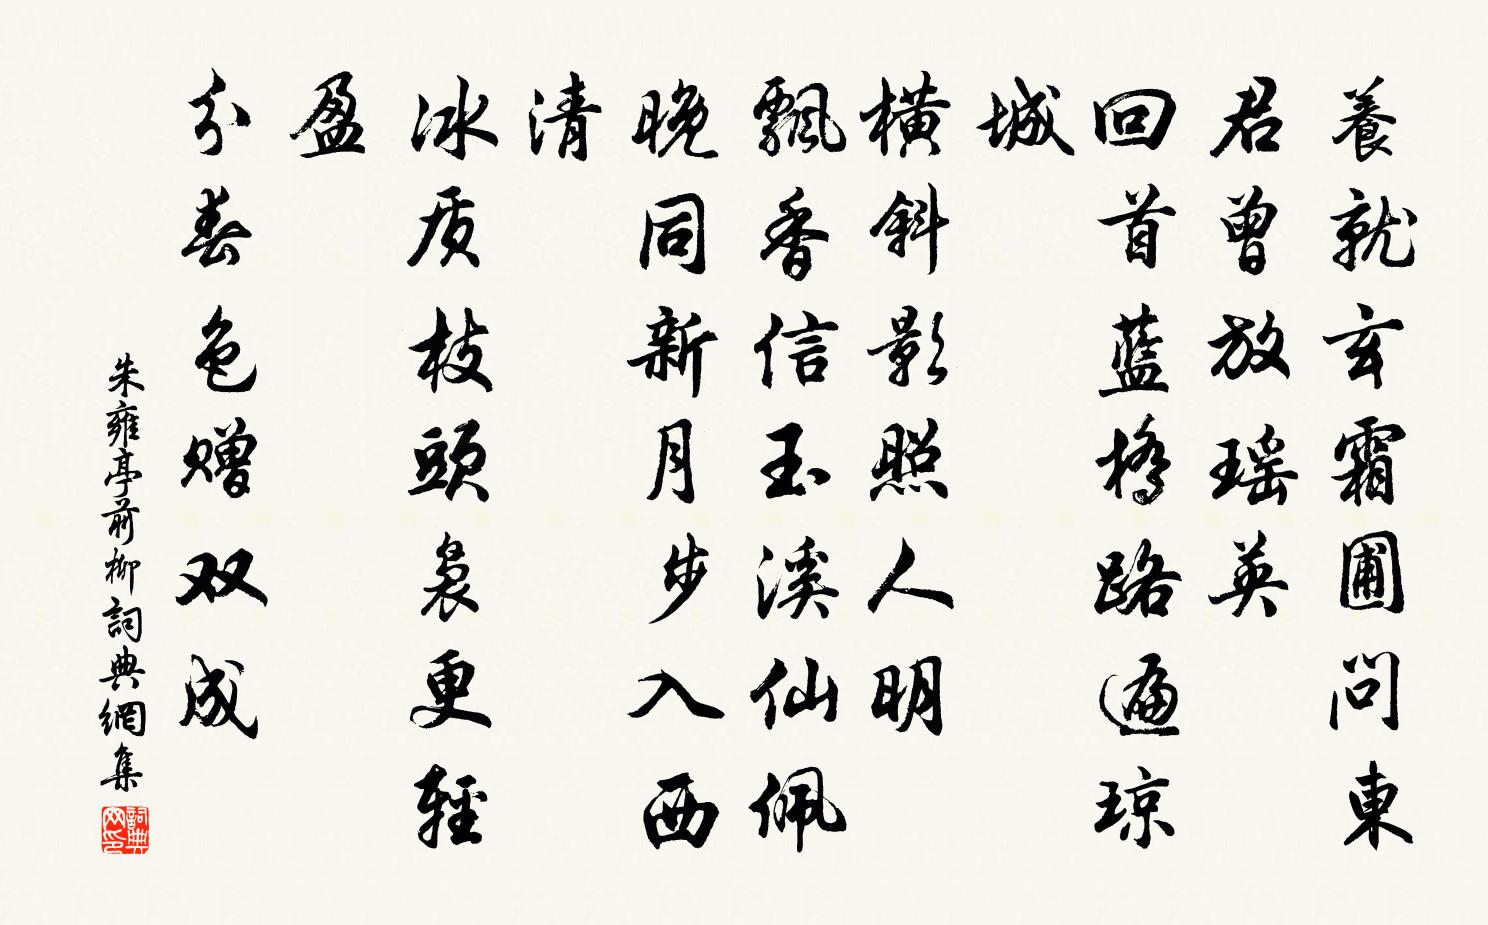 養就玄霜圃問東
君曾放瑶英
回首藍橋路遍琼
城
横斜影照人明
飄香信玉溪仙佩
晚同新月步入西
清
冰质枝頭裊更輕
盈
分春色赠双成
朱雍亭前柳詞典網集
詞典网印